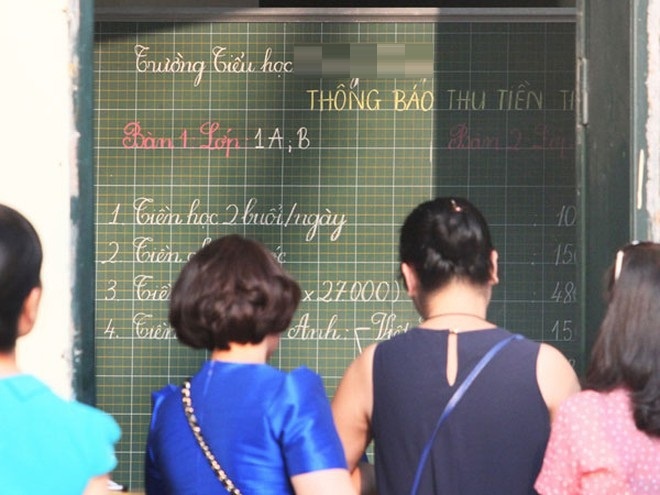 Trường Tiểu học
THÔNG BÁO THU TIỀN
Bàn 1 Lớp 1A; B
Bàn 2 Lớp
1. Tiền học 2 buổi/ngày : 10
2 Tiền : 150
3 Tiền x27000) : 480
4. Tiền Anh: 15